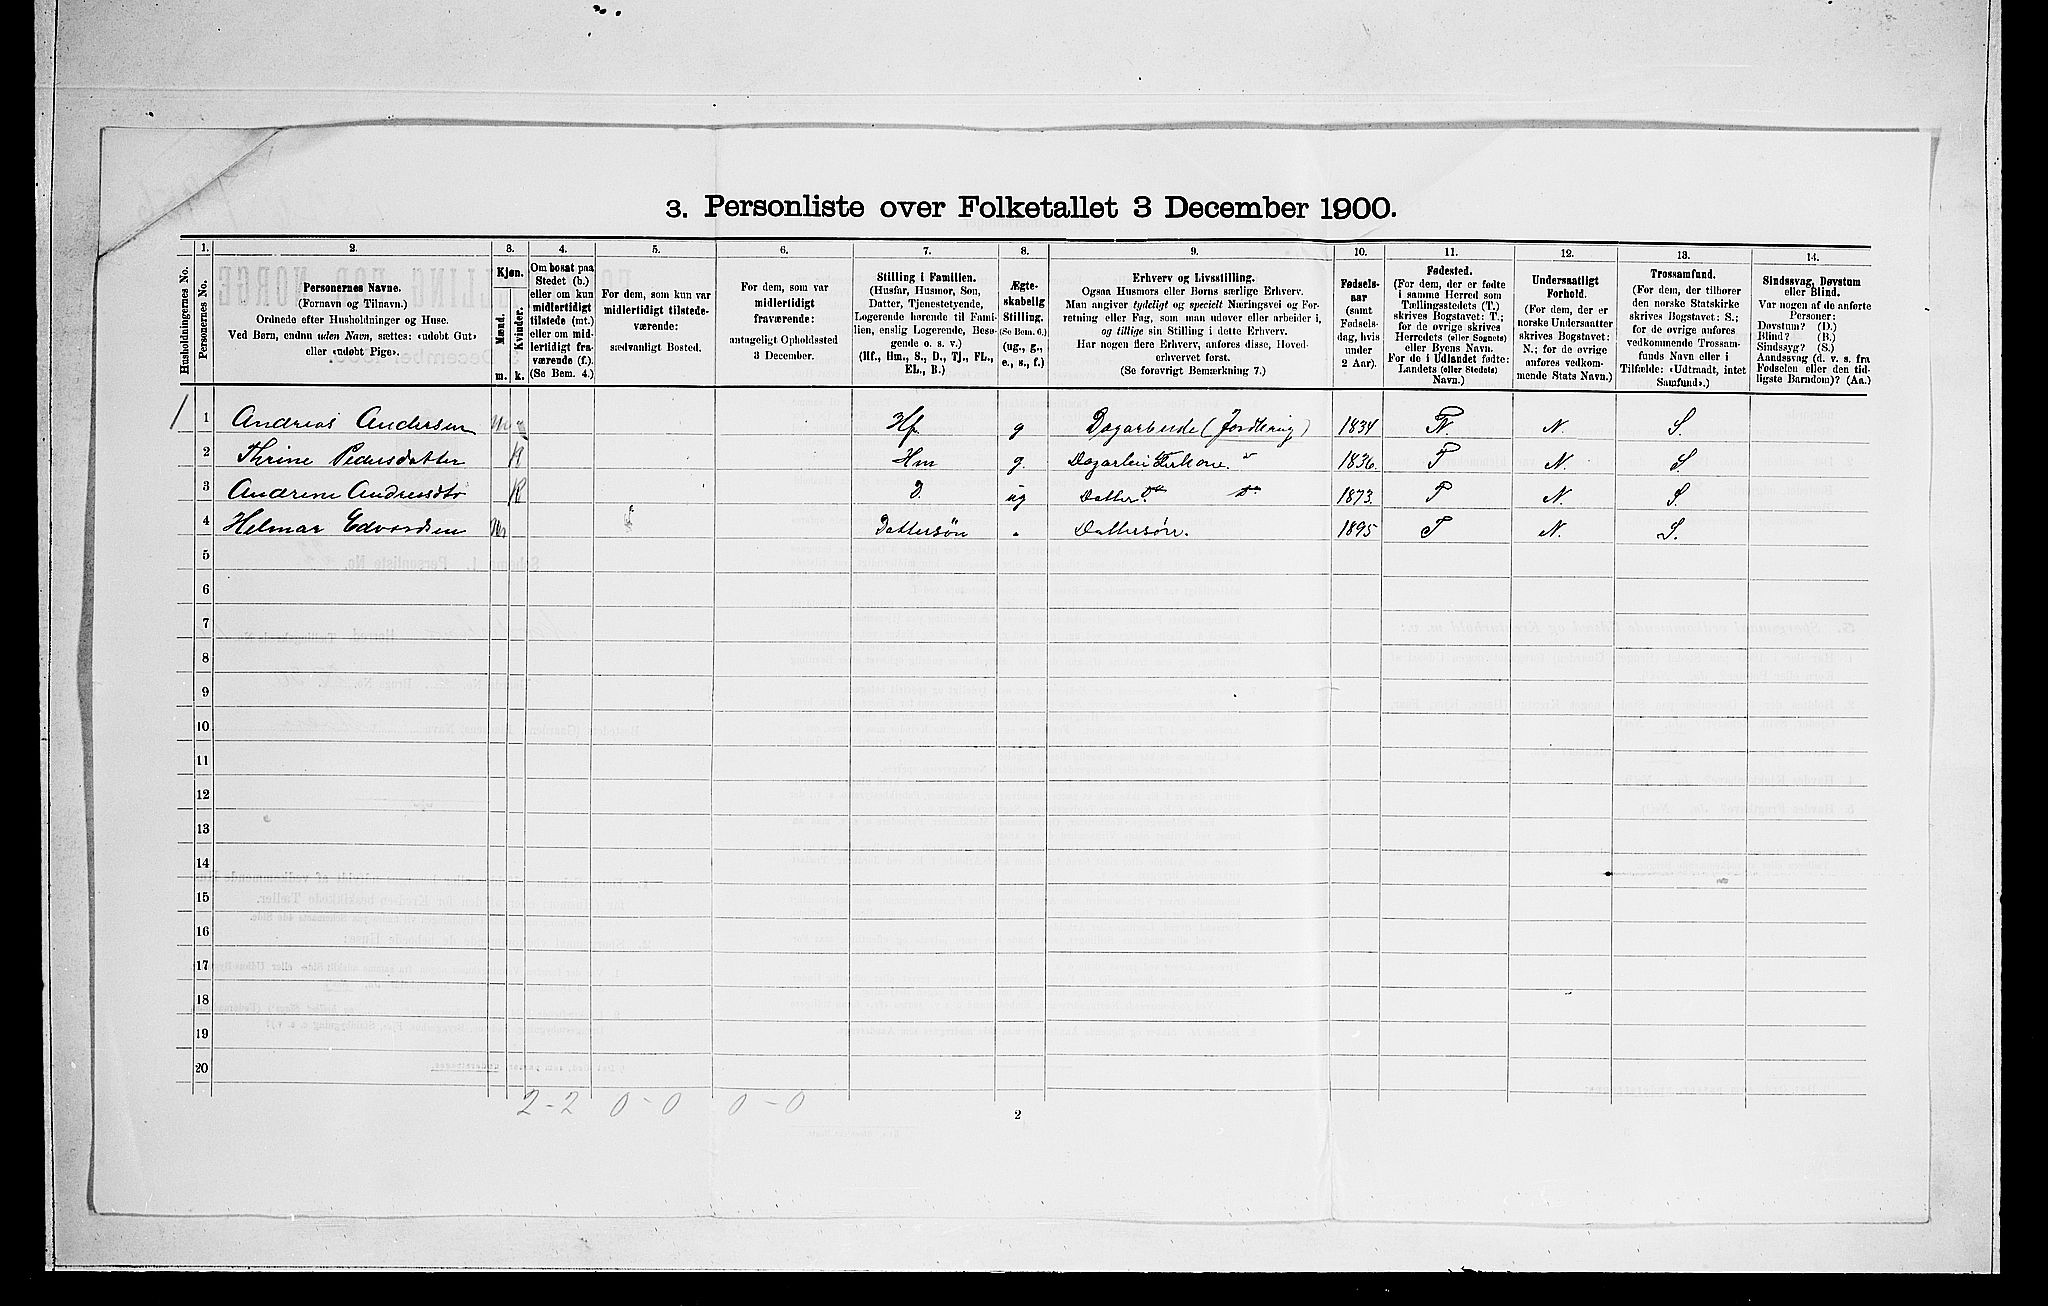 3. Personliste over Folketallet 3 December 1900.
Husholdningernes No.
1.
Personernes No.
2.
Personernes Navne.
(Fornavn og Tilnavn.)
Ordnede efter Husholdninger og Huse.
Ved Børn, endnu uden Navn, sættes: «udøbt Gut»
eller «udøbt Pige».
3.
Kjøn.
Mænd.
Kvinder.
m.
k.
4.
Om bosat paa
Stedet (b.)
eller om kun
midlertidigt
tilstede (mt.)
eller om mid-
lertidigt fra-
værende (f.)
(Se Bem. 4.)
5.
For dem, som kun var
midlertidigt tilstede-
værende:
sædvanligt Bosted.
6.
For dem, som var
midlertidigt
fraværende:
antageligt Opholdssted
3 December.
7.
Stilling i Familien.
(Husfar, Husmor, Søn,
Datter, Tjenestetyende,
Logerende hørende til Fami-
lien, enslig Logerende, Besø-
gende o. s. v.)
(Hf., Hm., S., D., Tj., FL.,
EL., B.)
8.
Ægte-
skabelig
Stilling.
(Se Bem. 6.)
(ug., g.,
e., s., f.)
9.
Erhverv og Livsstilling.
Ogsaa Husmors eller Børns særlige Erhverv.
Man angiver tydeligt og specielt Næringsvei og For-
retning eller Fag, som man udøver eller arbeider i,
og tillige sin Stilling i dette Erhverv.
Har nogen flere Erhverv, anføres disse, Hoved-
erhvervet først.
(Se forøvrigt Bemærkning 7.)
10.
Fødsels-
aar
(samt
Fødsels-
dag, hvis
under
2 Aar).
11.
Fødested.
(For dem, der er fødte
i samme Herred som
Tællingsstedets (T.),
skrives Bogstavet: T.;
for de øvrige skrives
Herredets (eller Sognets)
eller Byens Navn.
For de i Udlandet fødte:
Landets (eller Stedets)
Navn.)
12.
Undersaatligt
Forhold.
(For dem, der er
norske Undersaatter
skrives Bogstavet:
N.; for de øvrige
anføres vedkom-
mende Stats Navn.)
13.
Trossamfund.
(For dem, der tilhører
den norske Statskirke
skrives Bogstavet: S.;
for de øvrige anføres
vedkommende Trossam-
funds Navn eller i
Tilfælde: «Udtraadt, intet
Samfund».)
14.
Sindssvag, Døvstum
eller Blind.
Var nogen af de anførte
Personer:
Døvstum? (D.)
Blind? (B.)
Sindssyg? (S.)
Aandssvag (d. v. s. fra
Fødselen eller den tid-
ligste Barndom)? (Aa.)
1 1 Andreas Andersen m Hf g Dagarbeide (Jordbrug) 1834 N. S.
2 Thrine Pedersdatter k Hm g. 1836. T N. S.
3 Andrine k D. ug Datter 1873. T N. S.
4 Helmar Edvardsen m Dattersøn Dattersøn. 1895 T N. S.
5
6
7
8
9
10
11
12
13
14
15
16
17
18
19
20
2-2 0-0 0-0
2